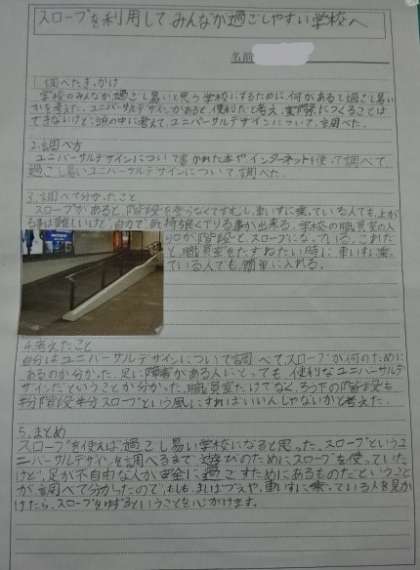 スロープを利用してみんなが過ごしやすい学校へ
名前
1.調べたきっかけ
学校のみんなが過ごし易いと思う学校になるために、何があると過ごし易い
かを考えた。ユニバーサルデザインがあると、便利だと考え、実際につくることは
できないけど、頭の中に考えて、ユニバーサルデザインについて、調べた。
2.調べ方
ユニバーサルデザインについて書かれた本やインターネットを使って調べて、
過ごし易いユニバーサルデザインについて調べた。
3.調べて分かったこと
スロープがあると、階段を登らなくてすむし、車いすに乗っている人でも、上が
る事は難しいけど、自力で
事が出来る。学校の職員室の入
り口が階段と、スロープになっている。これだ
と、職員室をたずねたい時に、車いすに乗っ
ている人でも、簡単に入れる。
4.考えたこと
自分はユニバーサルデザインについて調べてスロープが何のために
あるのか分かった。足に障害がある人にとっても便利なユニバーサルデ
ザインだということが分かった。職員室だけでなく、ろう下の階段も
半分階段半分スロープという風にすればいいんじゃないかと考えた。
5.まとめ
スロープを使えば過ごし易い学校になると思った。スロープというユ
ニバーサルデザインを調べるまで遊びのためにスロープを使っていた
けど、足が不自由な人が
に過ごすためにあるものだということ
が調べて分かったので、もしも、まつばづえや、車いすに乗っている人を見か
けたら、スロープをゆずるということを心がけます。